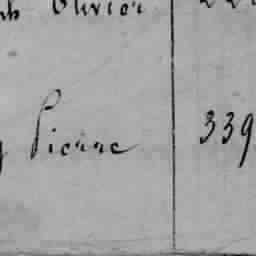 Olivier
Pierre 339